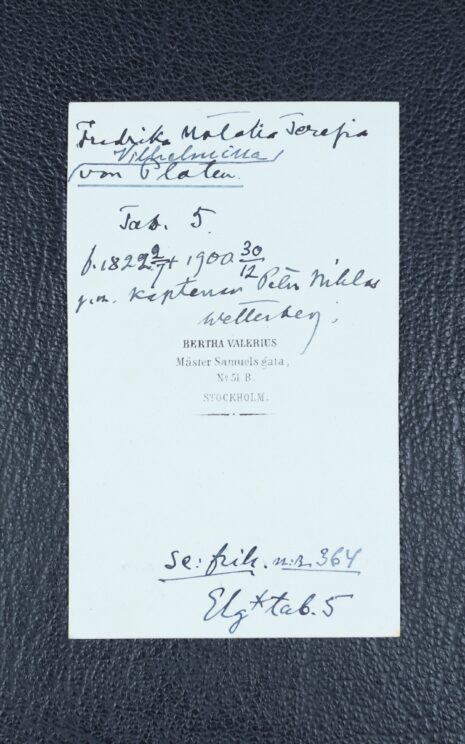 Fredrika Natalia Teresia
Vilhelmina
von Platen.
Tab. 5.
f. 1822 2/7 † 1900 30/12
g.m. kaptenen Peter Niklas
Wetterberg.
BERTHA VALERIUS
Mäster Samuels gata,
No 51 B.
STOCKHOLM.
se: frih. n:r 364
Elg* tab. 5